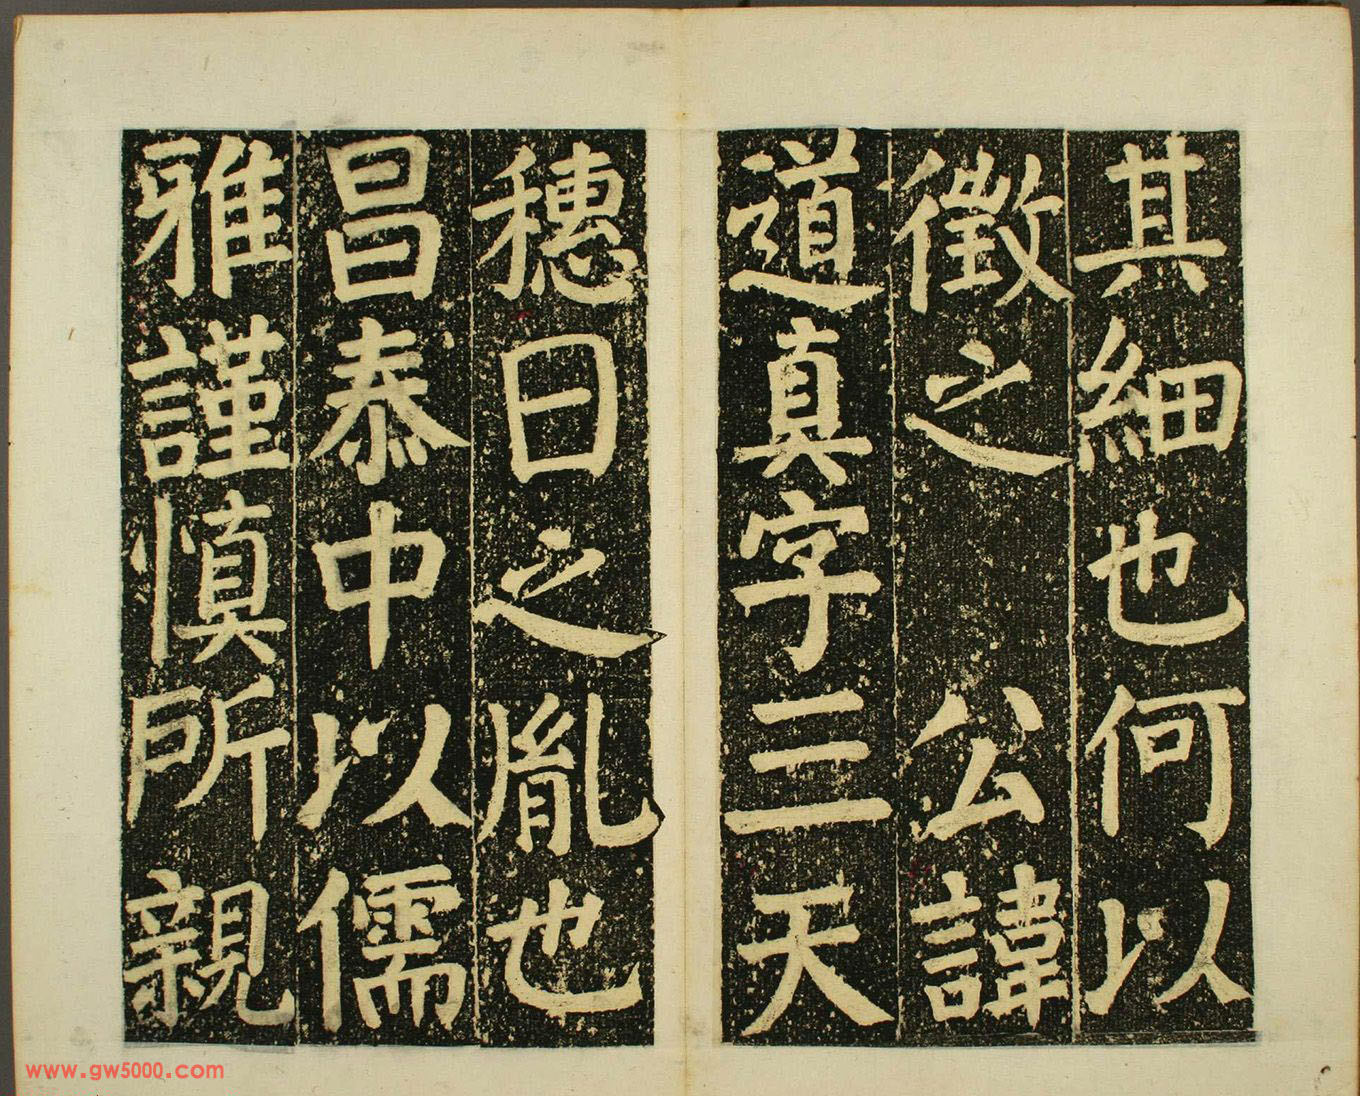 其細也何以
徵之公諱
道真字三天
穗曰之胤也
昌泰中以儒
雅謹慎所親
www.gw5000.com